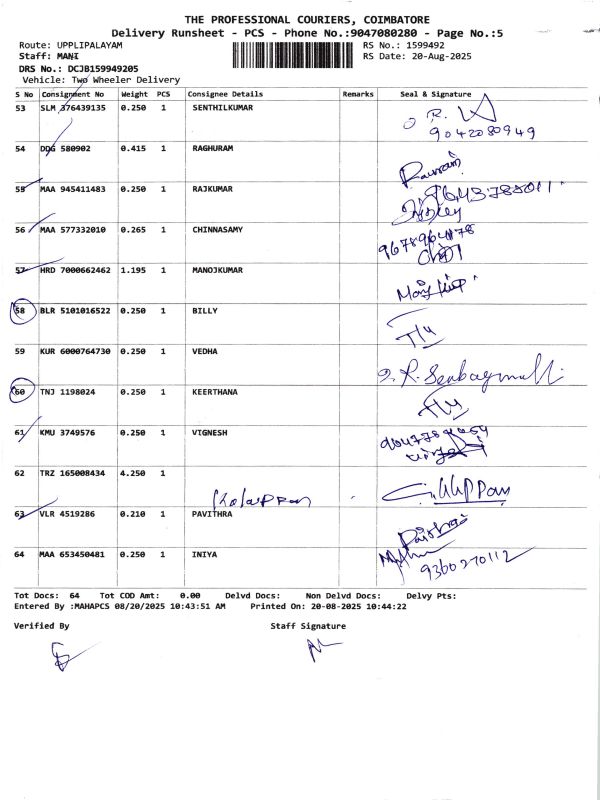 THE PROFESSIONAL COURIERS, COIMBATORE
Delivery Runsheet - PCS - Phone No.:9047080280 - Page No.:5
Route: UPPLIPALAYAM RS No.: 1599492
Staff: MANI RS Date: 20-Aug-2025
DRS No.: DCJB159949205
Vehicle: Two Wheeler Delivery
S No Consignment No Weight PCS Consignee Details Remarks Seal & Signature
53 SLM 376439135 0.250 1 SENTHILKUMAR
9042080949
54 DDG 580902 0.415 1 RAGHURAM
55 MAA 945411483 0.250 1 RAJKUMAR
56 MAA 577332010 0.265 1 CHINNASAMY
57 HRD 7000662462 1.195 1 MANOJKUMAR
58 BLR 5101016522 0.250 1 BILLY
59 KUR 6000764730 0.250 1 VEDHA
60 TNJ 1198024 0.250 1 KEERTHANA
61 KMU 3749576 0.250 1 VIGNESH
62 TRZ 165008434 4.250 1
63 VLR 4519286 0.210 1 PAVITHRA
64 MAA 653450481 0.250 1 INIYA
9360270112
Tot Docs: 64 Tot COD Amt: 0.00 Delvd Docs: Non Delvd Docs: Delvy Pts:
Entered By :MAHAPCS 08/20/2025 10:43:51 AM Printed On: 20-08-2025 10:44:22
Verified By Staff Signature